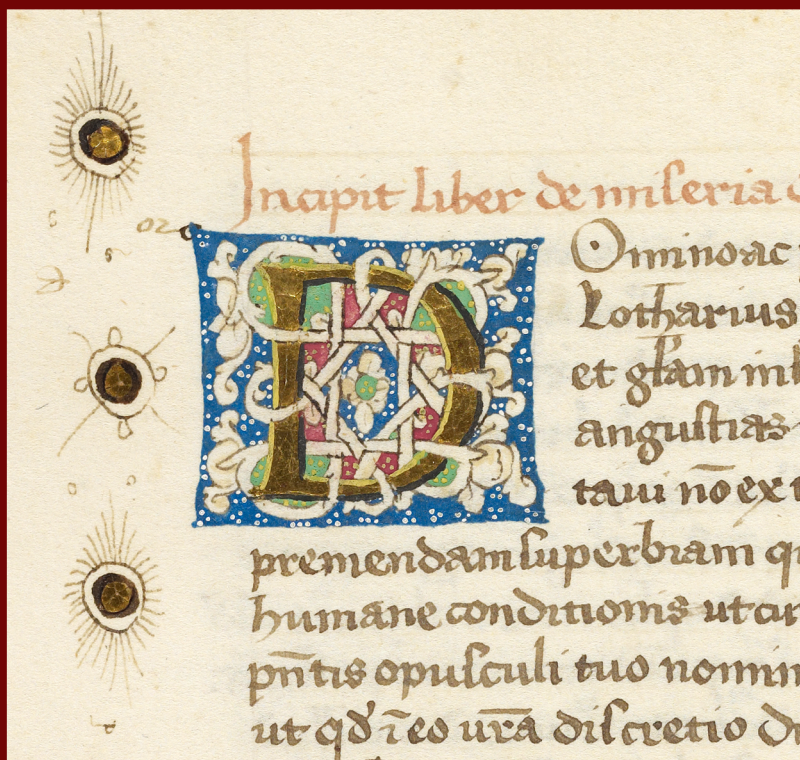 Incipit liber de miseria
D Omino ac
Lotharius
et gl̃am in
angustias
taui nō ex
premendam superbiam
humane conditionis ut
pñtis opusculi tuo
ut qđ ī eo ur̄a discretio